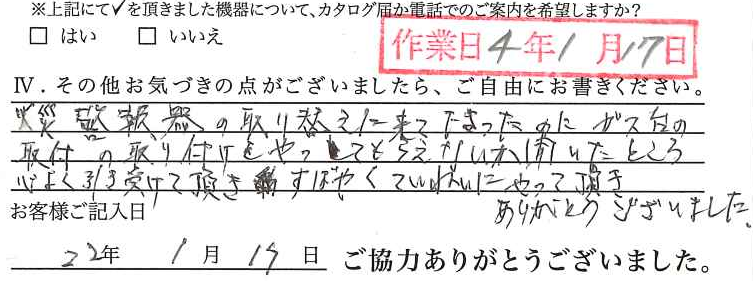 ※上記にて✓を頂きました機器について、カタログ届か電話でのご案内を希望しますか?
□ はい □ いいえ
作業日 4年1月17日
Ⅳ.その他お気づきの点がございましたら、ご自由にお書きください。
災警報器の取り替えに来て下さったのにガス台の
取付の取り付けをやってもらえないか聞いたところ
心よく引き受けて頂きすばやくていねいにやって頂き
ありがとうございました。
お客様ご記入日
22年 1月 17日 ご協力ありがとうございました。